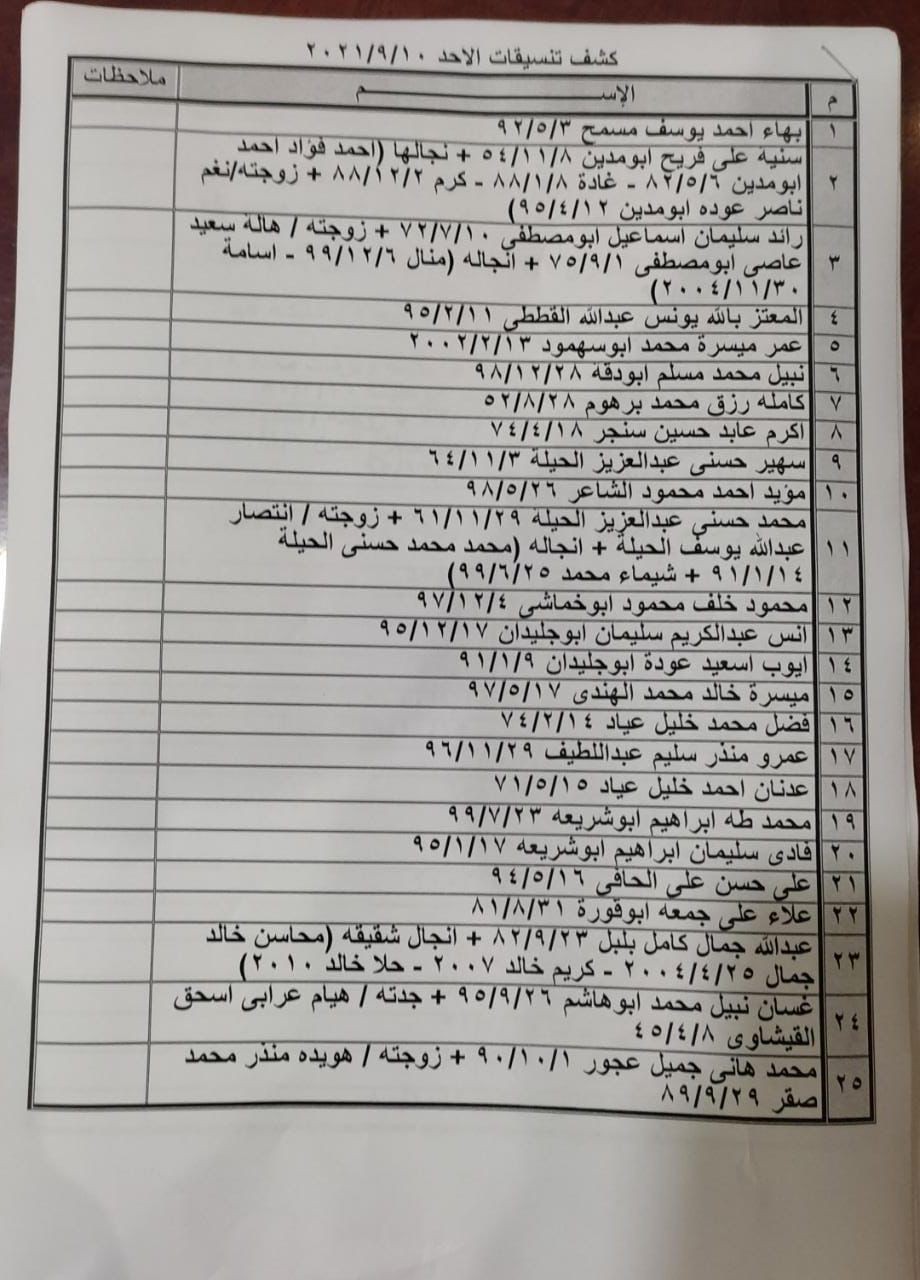 كشف تنسيقات الاحد ٢٠٢١/٩/١٠
م الإســـــــــم ملاحظات
١ بهاء احمد يوسف مسمح ٩٢/٥/٣
٢ سنية على فريح ابومدين ٥٤/١١/٨ + نجالها (احمد فؤاد احمد
ابومدين ٨٢/٥/٦ - غادة ٨٨/١/٨ - كرم ٨٨/١٢/٢ + زوجته/نغم
ناصر عوده ابومدين ٩٥/٤/١٢)
٣ رائد سليمان اسماعيل ابومصطفى ٧٢/٧/١٠ + زوجته / هالة سعيد
عاصى ابومصطفى ٧٥/٩/١ + انجاله (منال ٩٩/١٢/٦ - اسامة
٢٠٠٤/١١/٣٠)
٤ المعتز بالله يونس عبدالله القططى ٩٥/٢/١١
٥ عمر ميسرة محمد ابوسهمود ٢٠٠٢/٢/١٣
٦ نبيل محمد مسلم ابودقة ٩٨/١٢/٢٨
٧ كامله رزق محمد برهوم ٥٢/٨/٢٨
٨ اكرم عابد حسين سنجر ٧٤/٤/١٨
٩ سهير حسنى عبدالعزيز الحيلة ٦٤/١١/٣
١٠ مؤيد احمد محمود الشاعر ٩٨/٥/٢٦
١١ محمد حسنى عبدالعزيز الحيلة ٦١/١١/٢٩ + زوجته / انتصار
عبدالله يوسف الحيلة + انجاله (محمد محمد حسنى الحيلة
٩١/١/١٤ + شيماء محمد ٩٩/٦/٢٥)
١٢ محمود خلف محمود ابوخماشى ٩٧/١٢/٤
١٣ انس عبدالكريم سليمان ابوجليدان ٩٥/١٢/١٧
١٤ ايوب اسعيد عودة ابوجليدان ٩١/١/٩
١٥ ميسرة خالد محمد الهندى ٩٧/٥/١٧
١٦ فضل محمد خليل عياد ٧٤/٢/١٤
١٧ عمرو منذر سليم عبداللطيف ٩٦/١١/٢٩
١٨ عدنان احمد خليل عياد ٧١/٥/١٥
١٩ محمد طه ابراهيم ابوشريعه ٩٩/٧/٢٣
٢٠ فادى سليمان ابراهيم ابوشريعه ٩٥/١/١٧
٢١ على حسن على الحافى ٩٤/٥/١٦
٢٢ علاء على جمعه ابوقورة ٨١/٨/٣١
٢٣ عبدالله جمال كامل بلبل ٨٢/٩/٢٣ + انجال شقيقه (محاسن خالد
جمال ٢٠٠٤/٤/٢٥ - كريم خالد ٢٠٠٧ - حلا خالد ٢٠١٠)
٢٤ غسان نبيل محمد ابوهاشم ٩٥/٩/٢٦ + جدته / هيام عرابى اسحق
القيشاوى ٤٥/٤/٨
٢٥ محمد هانى جميل عجور ٩٠/١٠/١ + زوجته / هويده منذر محمد
صقر ٨٩/٩/٢٩